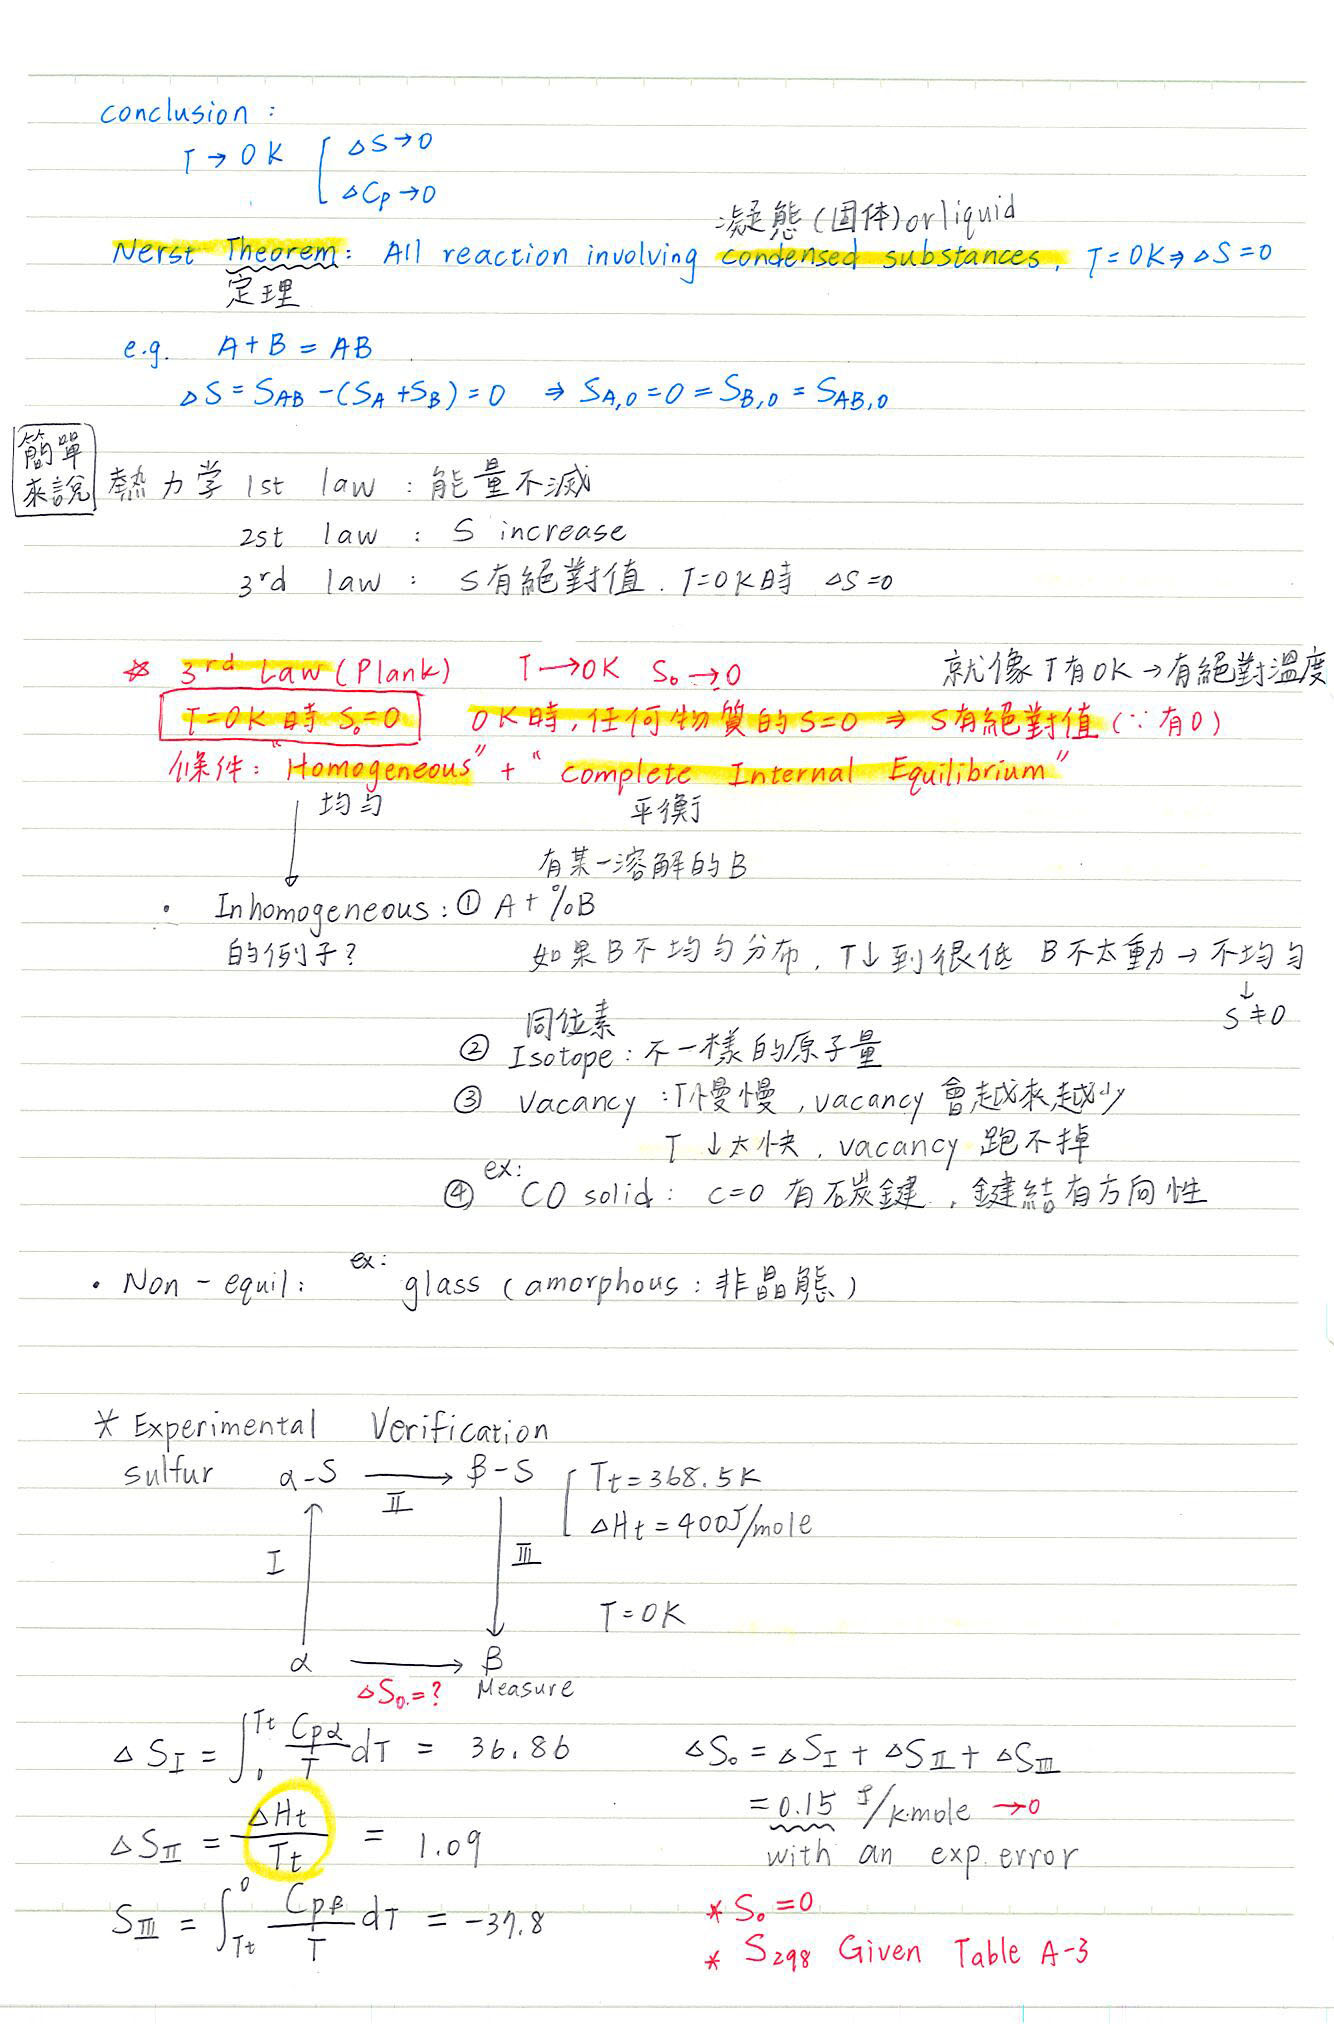 conclusion :
T → 0K [ ΔS→0
ΔCp→0
凝態(固体)or liquid
Nerst Theorem: All reaction involving condensed substances, T=0K⇒ΔS=0
定理
e.g. A+B = AB
ΔS=S_AB-(S_A+S_B)=0 ⇒ S_A,0=0=S_B,0=S_AB,0
簡單
來說
熱力学 1st law : 能量不滅
2st law : S increase
3rd law : S有絕對值. T=0K時 ΔS=0
☆ 3rd Law (Plank) T→0K S₀→0 就像T有0K→有絕對溫度
T=0K時 S₀=0 0K時,任何物質的S=0 ⇒ S有絕對值(∵有0)
條件: "Homogeneous" + "complete Internal Equilibrium"
均勻 平衡
有某一溶解的B
· Inhomogeneous: ① A+%B
的例子? 如果B不均勻分布, T↓到很低 B不太動→不均勻
↓
S≠0
同位素
② Isotope: 不一樣的原子量
③ Vacancy : T慢慢, vacancy 會越來越少
T↓太快, vacancy 跑不掉
④ ex: CO solid: C=O 有石炭鍵, 鍵結有方向性
· Non-equil: ex: glass (amorphous: 非晶態)
* Experimental Verification
sulfur α-S → β-S [ Tt=368.5K
II
ΔHt=400J/mole
I III
T=0K
α → β
ΔS₀=? Measure
ΔS_I = ∫₀^Tt Cpα/T dT = 36.86 ΔS₀ = ΔS_I + ΔS_II + ΔS_III
= 0.15 J/K·mole →0
ΔS_II = ΔHt/Tt = 1.09 with an exp. error
S_III = ∫_Tt^0 Cpβ/T dT = -37.8 * S₀=0
* S₂₉₈ Given Table A-3